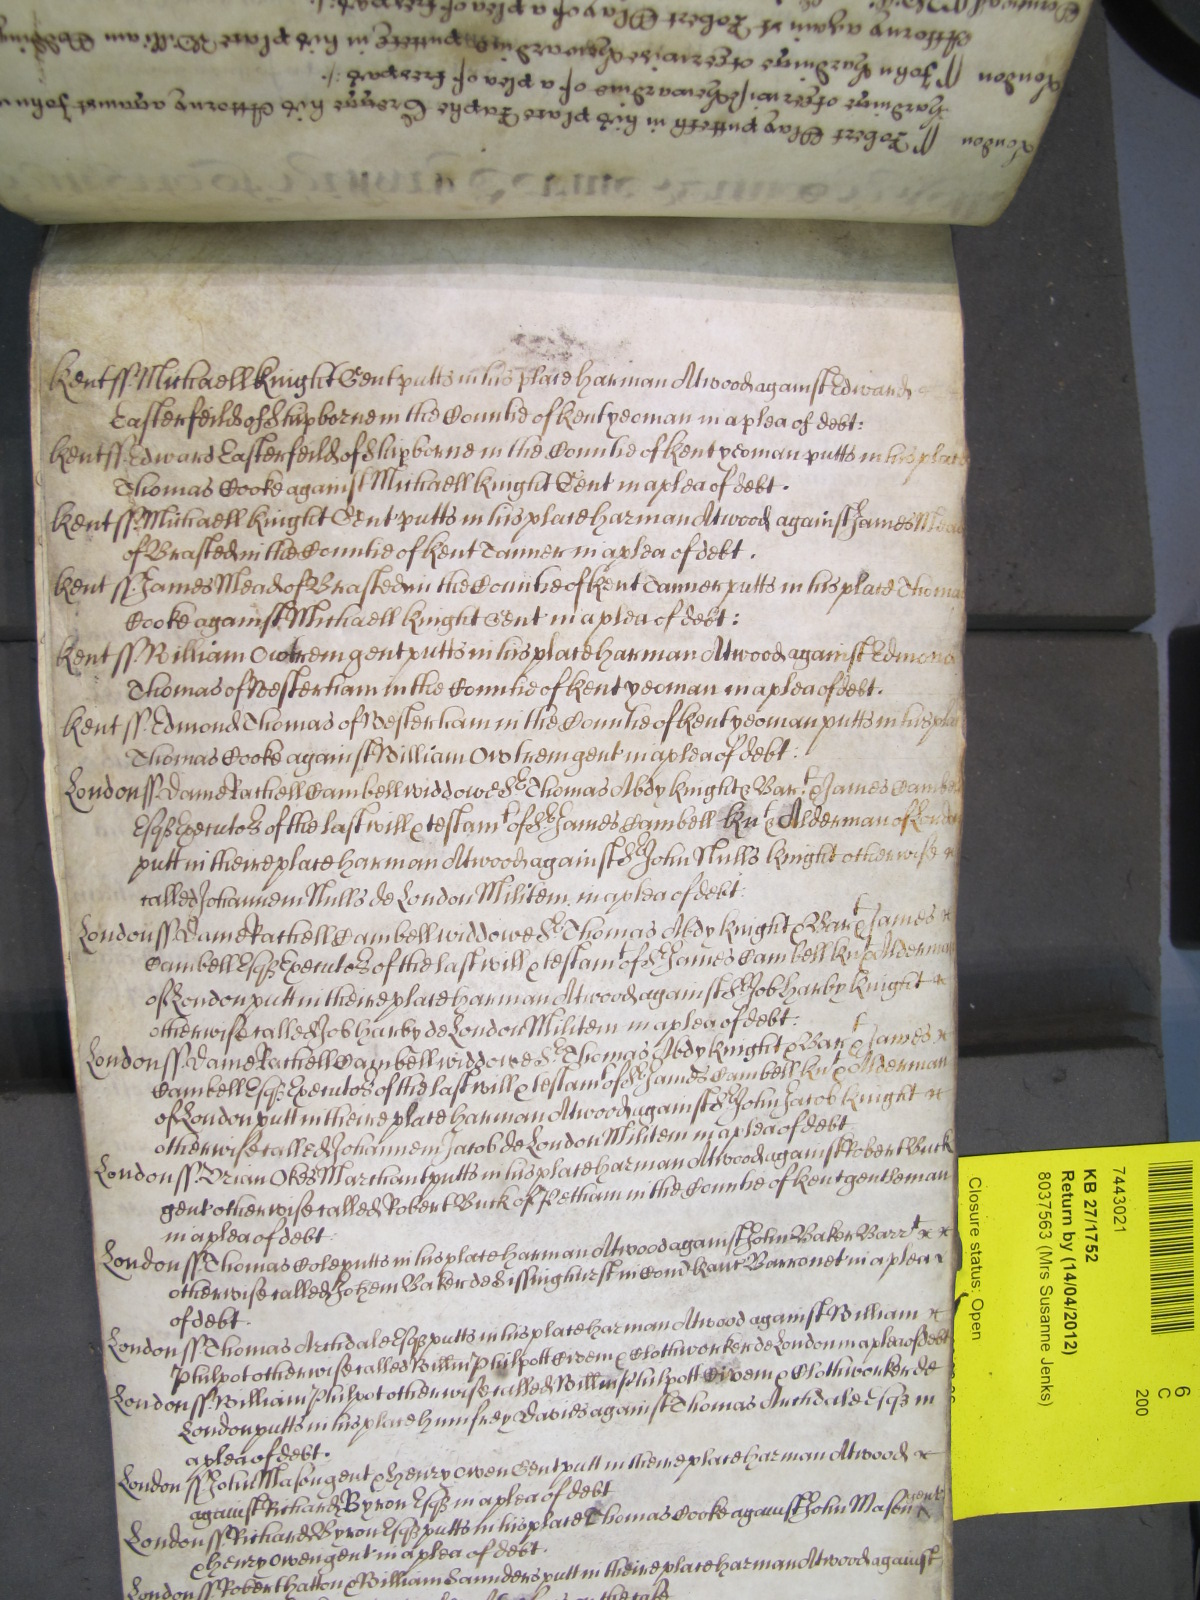 London Robert Clay putteth in his place Jasphe Creyge his Attorny against John
Hardinge otherwise
of a plea of trespas
London John Hardinge otherwise in his place William
Attorny against Robert Clay of a plea of trespas
Kent ss Michaell Knight Gent putts in his place Harman Atwood against Edward
Easterfeild of Shipborne in the Countie of Kent yeoman in a plea of debt:
Kent ss Edward Easterfeild of Shipborne in the Countie of Kent yeoman putts in his place
Thomas Cooke against Michaell Knight Gent in a plea of debt.
Kent ss Michaell Knight Gent putts in his place Harman Atwood against James Mead
of Brasted in the Countie of Kent Tanner in a plea of debt.
Kent ss James Mead of Brasted in the Countie of Kent Tanner putts in his place Thomas
Cooke against Michaell Knight Gent in a plea of debt:
Kent ss William Owtrem gent putts in his place Harman Atwood against Edmond
Thomas of Westerham in the Countie of Kent yeoman in a plea of debt.
Kent ss Edmond Thomas of Westerham in the Countie of Kent yeoman putts in his place
Thomas Cooke against William Owtrem gent in a plea of debt:
London ss Dame Rachell Cambell widdowe Sr Thomas Abdy Knight & Bart & James Cambell
Esqr Executors of the last will & testamt of Sr James Cambell Knt & Alderman of London
putt in theire place Harman Atwood against Sr John Nulls Knight otherwise
called Johannem Nulls de London Militem in a plea of debt:
London ss Dame Rachell Cambell widdowe Sr Thomas Abdy Knight & Bart & James
Cambell Esqr Executors of the last will & testamt of Sr James Cambell Knt & Alderman
of London putt in theire place Harman Atwood against Sr Job Harby Knight
otherwise called Job Harby de London Militem in a plea of debt:
London ss Dame Rachell Cambell widdowe Sr Thomas Abdy Knight & Bart & James
Cambell Esqr Executors of the last will & testamt of Sr James Cambell Knt & Alderman
of London putt in theire place Harman Atwood against Sr John Jacob Knight
otherwise called Johannem Jacob de London Militem in a plea of debt
London ss Brian Okes Marchant putts in his place Harman Atwood against Robert Buck
gent otherwise called Robert Buck of Petham in the Countie of Kent gentleman
in a plea of debt
London ss Thomas Cole putts in his place Harman Atwood against John Baker Barrt
otherwise called Johem Baker de Sissinghurst in Com Kanc Barronet in a plea
of debt.
London ss Thomas Archdale Esqr putts in his place Harman Atwood against William
Philpot otherwise called Willm Philpott Civem & Clothworker de London in a plea of debt
London ss William Philpot otherwise called Willm Philpott Civem & Clothworker de
London putts in his place Humfrey Davies against Thomas Archdale Esqr in
a plea of debt.
London ss John Mason gent & Henry Owen Gent putt in theire place Harman Atwood
against Richard Byron Esqr in a plea of debt
London ss Richard Byron Esqr putts in his place Thomas Cooke against John Mason gent
& Henry Owen gent in a plea of debt.
London ss Robert Hatton & William Saunders putt in theire place Harman Atwood against
7443021
KB 27/1752
Return by (14/04/2012)
8037563 (Mrs Susanne Jenks)
Closure status: Open
6
C
200